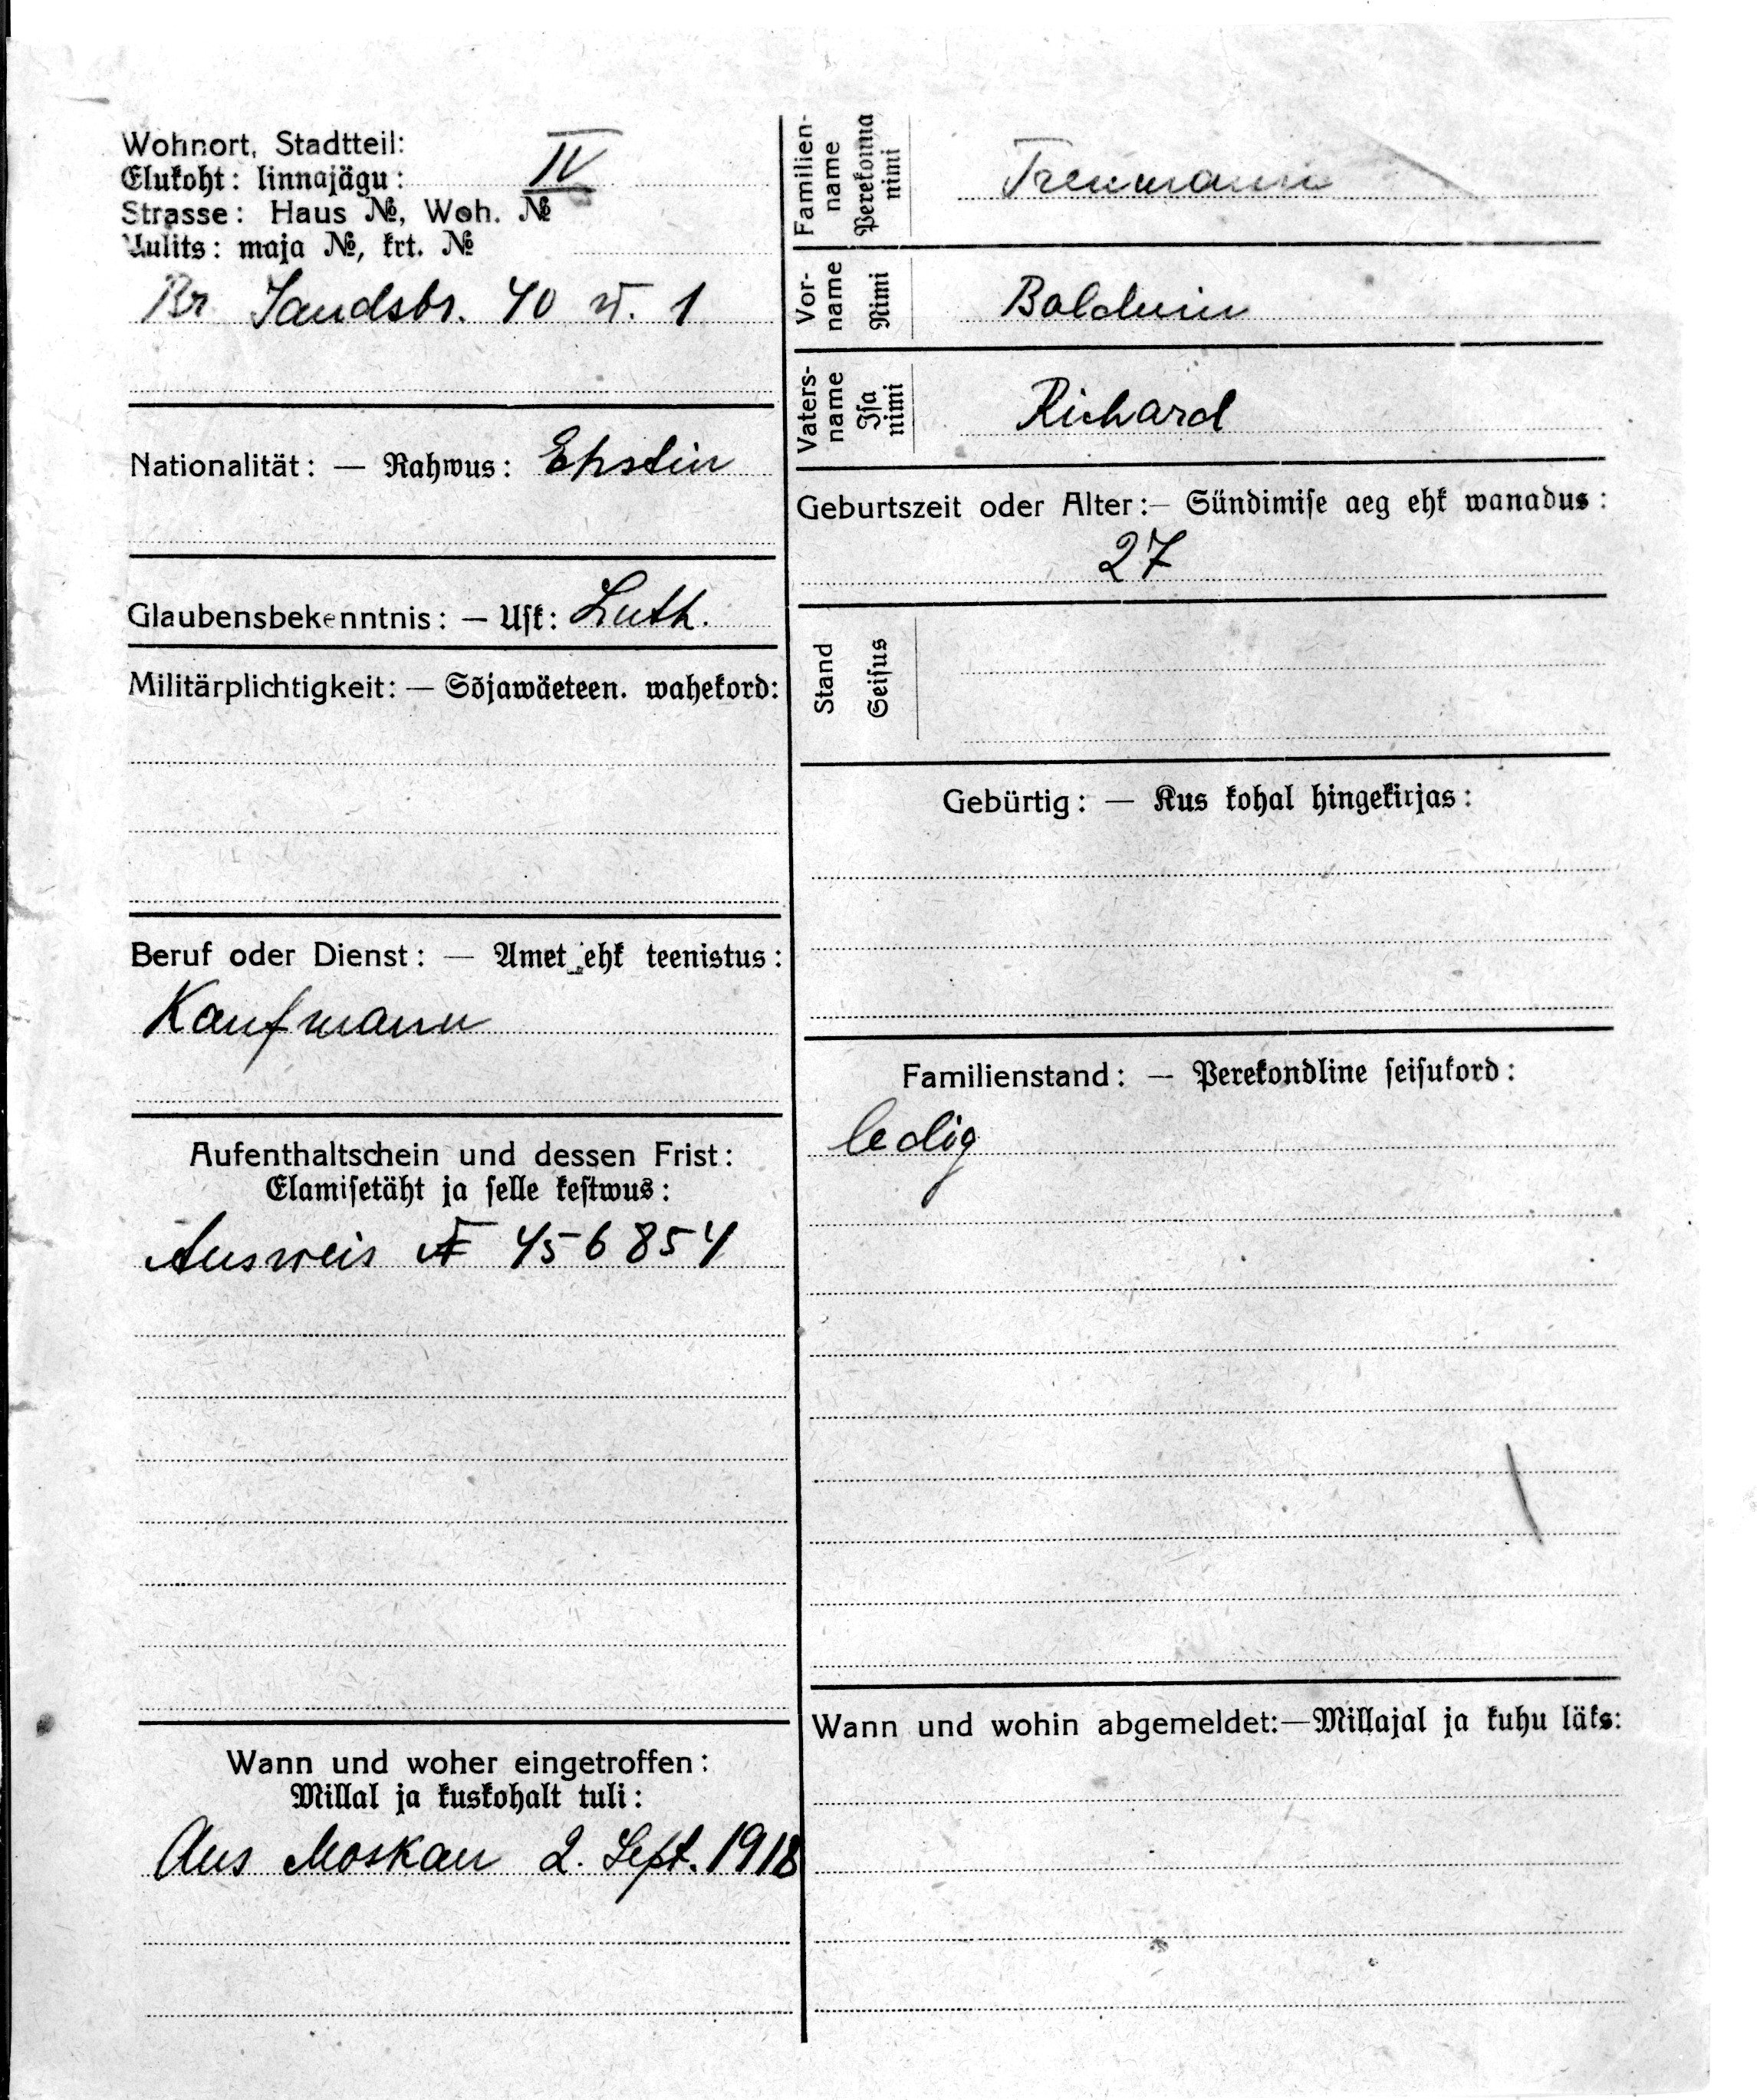 Wohnort, Stadtteil:
Elukoht: linnajägu: IV
Strasse: Haus №, Woh. №
Uulits: maja №, krt. №
Br Sandstr. 40 w. 1
Nationalität: — Rahwus: Ehstin
Glaubensbekenntnis: — Usk: Luth.
Militärplichtigkeit: — Sõjawäeteen. wahekord:
Beruf oder Dienst: — Amet ehk teenistus:
Kaufmann
Aufenthaltschein und dessen Frist:
Elamisetäht ja selle kestwus:
Ausweis № 456854
Wann und woher eingetroffen:
Millal ja kuskohalt tuli:
Aus Moskau 2. Sept. 1918
Familien-
name
Perekonna
nimi
Vor-
name
Nimi
Balduin
Vaters-
name
Isa
nimi
Richard
Geburtszeit oder Alter:— Sündimise aeg ehk wanadus:
27
Stand
Seisus
Gebürtig: — Kus kohal hingekirjas:
Familienstand: — Perekondline seisukord:
ledig
Wann und wohin abgemeldet:—Millajal ja kuhu läks: